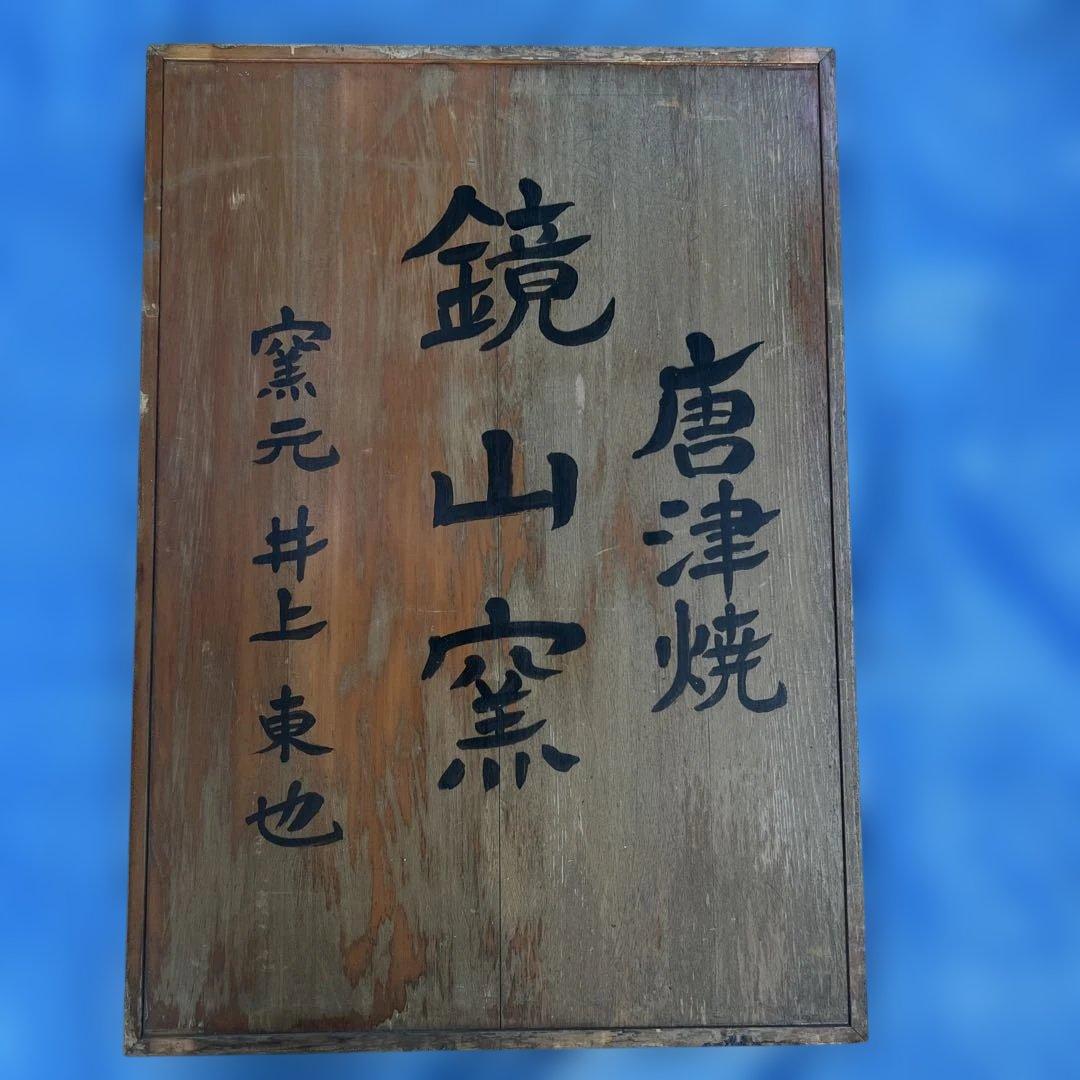 唐津焼
鏡山窯
窯元 井上 東也